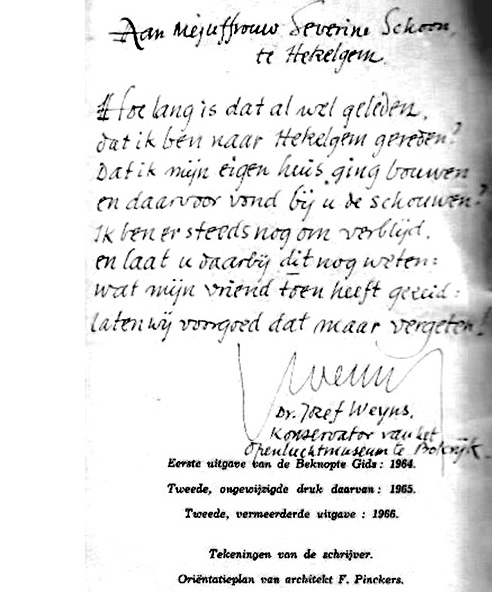 Aan Mejuffrouw Severine Schoon,
te Hekelgem.
Hoe lang is dat al wel geleden,
dat ik ben naar Hekelgem gereden?
Dat ik mijn eigen huis ging bouwen
en daarvoor vond bij u de schouwen?
Ik ben er steeds nog om verblijd,
en laat u daarbij dit nog weten:
wat mijn vriend toen heeft gezeid:
laten wij voorgoed dat maar vergeten!
Weyns
Dr. Jozef Weyns,
Konservator van het
Openluchtmuseum te Bokrijk.
Eerste uitgave van de Beknopte Gids : 1964.
Tweede, ongewijzigde druk daarvan : 1965.
Tweede, vermeerderde uitgave : 1966.
Tekeningen van de schrijver.
Oriëntatieplan van architekt F. Pinckers.